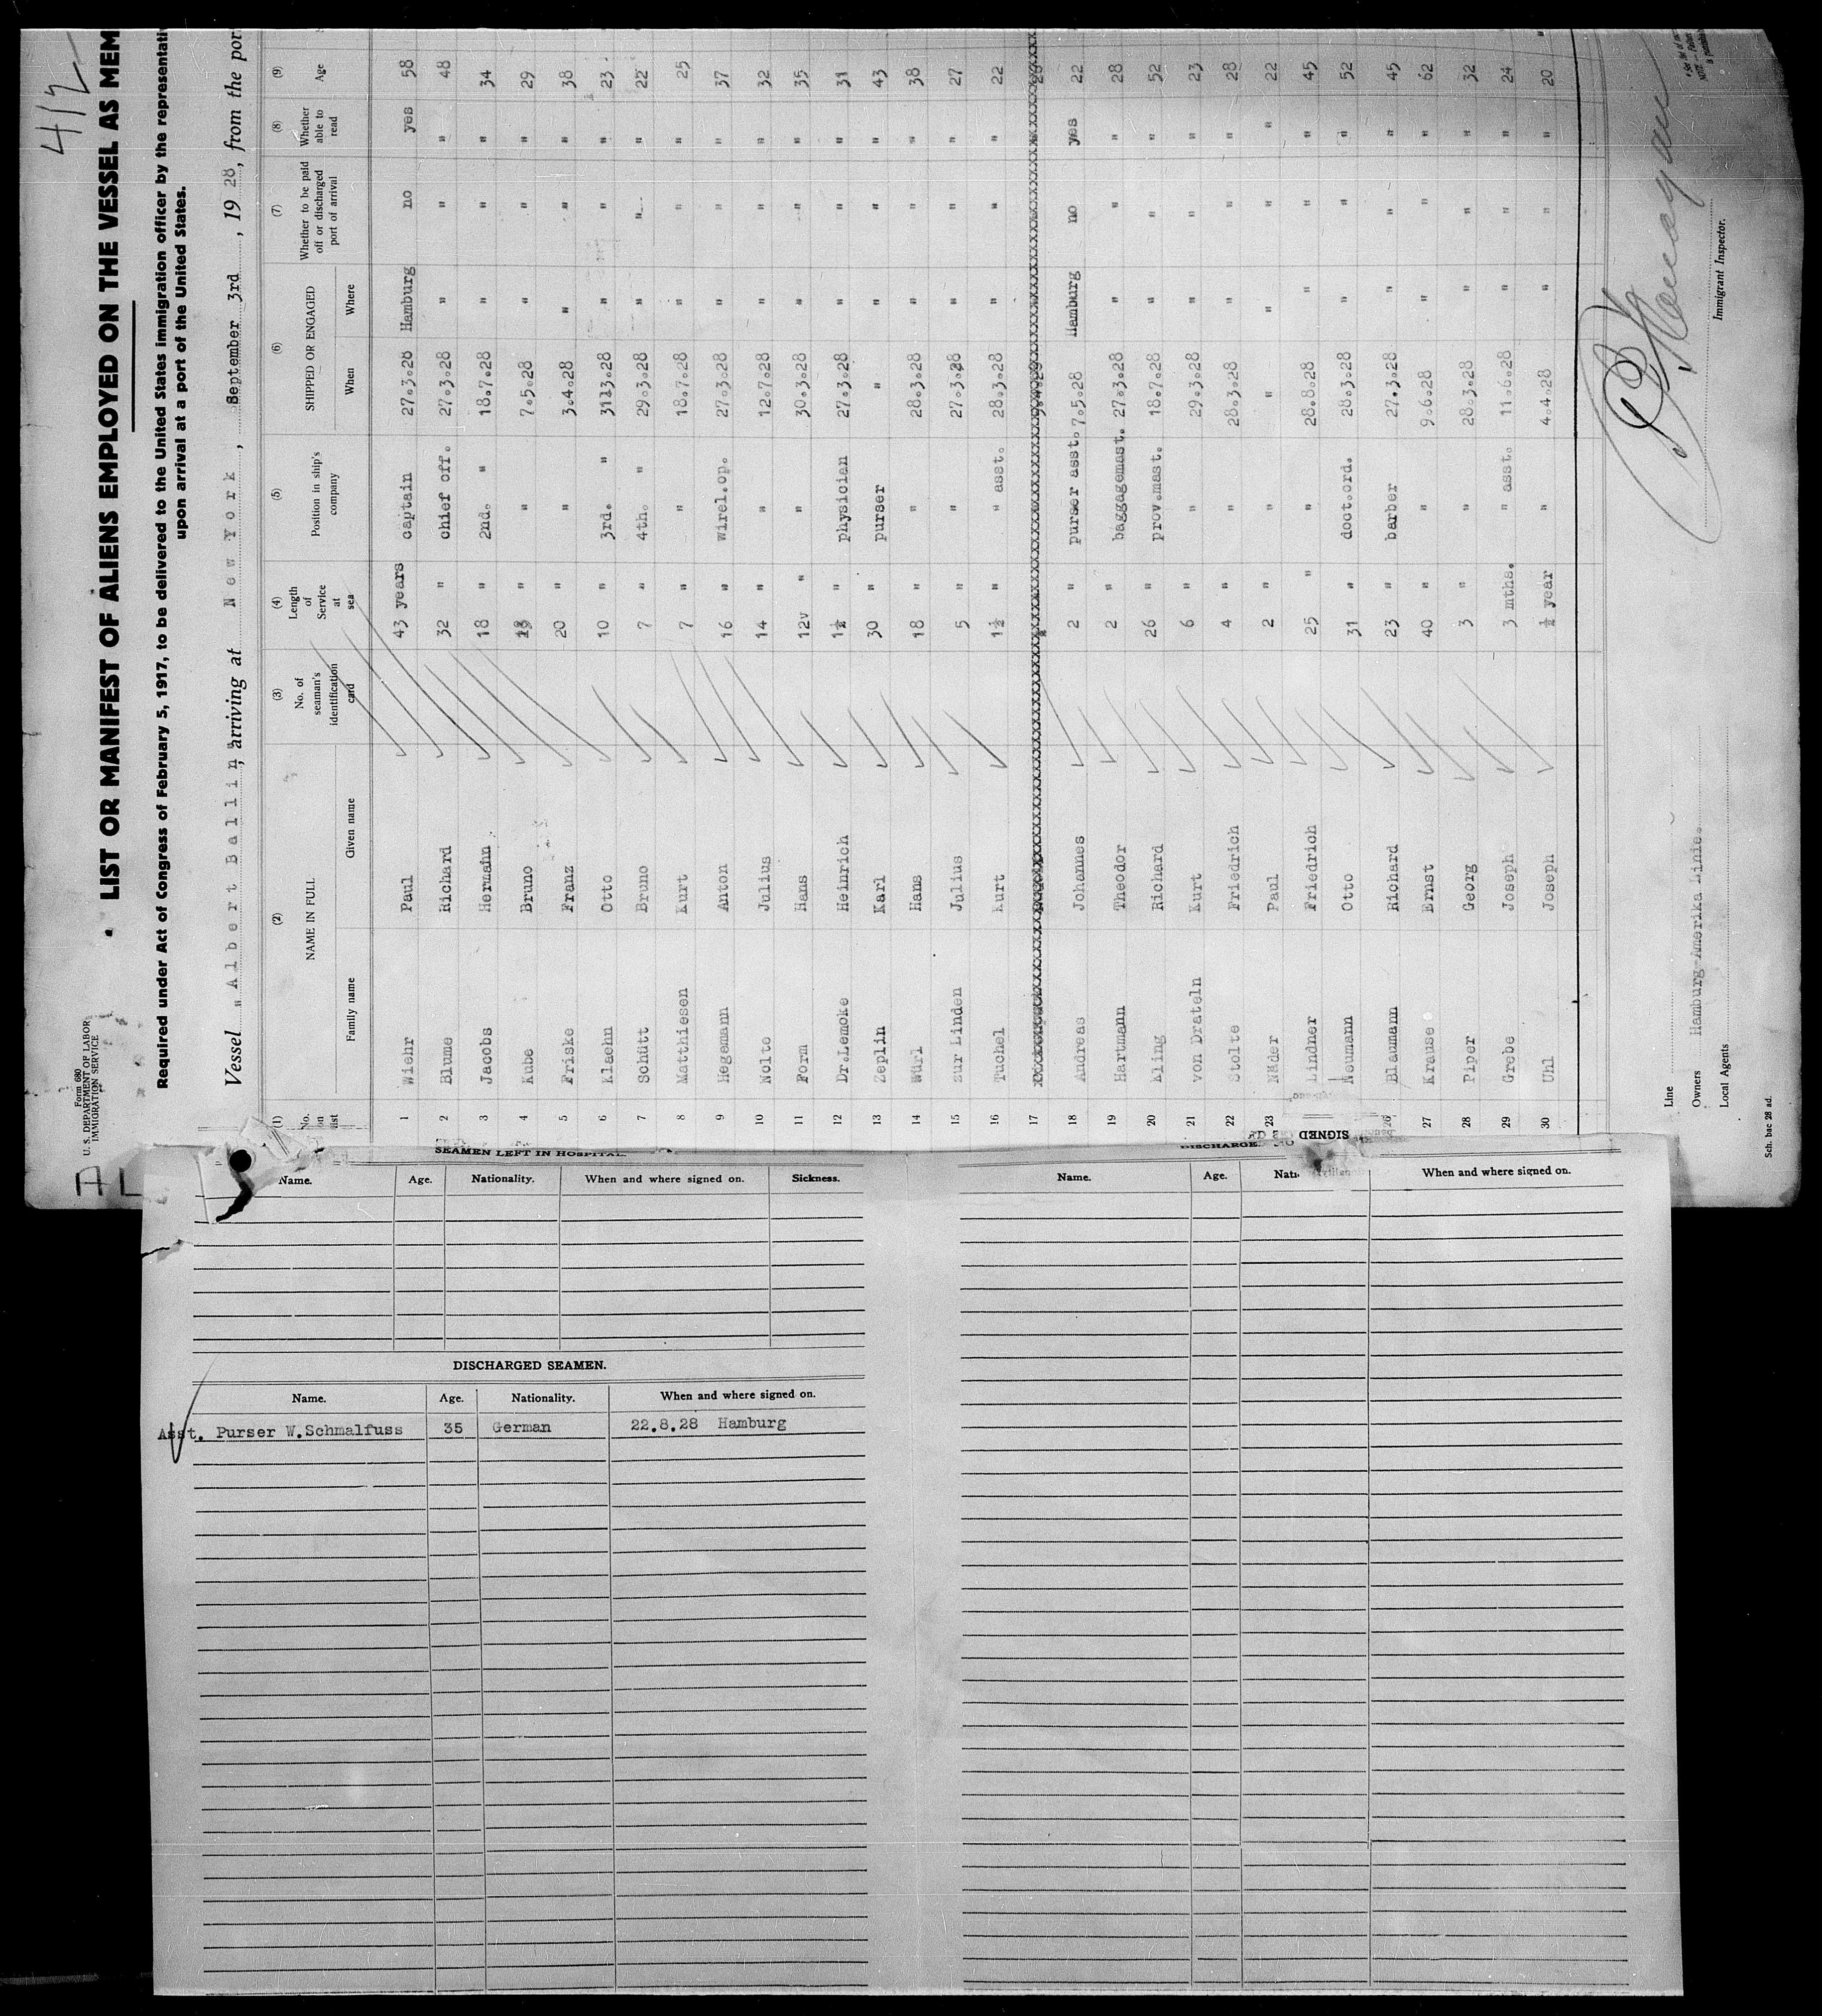 412
Form 680
U. S. DEPARTMENT OF LABOR
IMMIGRATION SERVICE
AL
LIST OR MANIFEST OF ALIENS EMPLOYED ON THE VESSEL AS MEM
Required under Act of Congress of February 5, 1917, to be delivered to the United States immigration officer by the representati
upon arrival at a port of the United States.
Vessel "Albert Ballin", arriving at New York, September 3rd, 1928, from the por
(1) (2) (3) (4) (5) (6) (7) (8) (9)
No. on list NAME IN FULL No. of seaman's identification card Length of Service at sea Position in ship's company SHIPPED OR ENGAGED Whether to be paid off or discharged port of arrival Whether able to read Age
Family name Given name When Where
1 Wiehr Paul 43 years captain 27.3.28 Hamburg no yes 58
2 Blume Richard 32 " chief off. 27.3.28 " " " 48
3 Jacobs Hermann 18 " 2nd. " 18.7.28 " " " 34
4 Kube Bruno " " 7.5.28 " " " 29
5 Friske Franz 20 " " 3.4.28 " " " 38
6 Klaehn Otto 10 " 3rd. " 3113.28 " " " 23
7 Schütt Bruno 7 " 4th. " 29.3.28 " " " 22
8 Matthiesen Kurt 7 " " 18.7.28 " " " 25
9 Hegemann Anton 16 " wirel.op. 27.3.28 " " " 37
10 Nolte Julius 14 " " 12.7.28 " " " 32
11 Form Hans 12v " " 30.3.28 " " " 35
12 Dr.Lemoke Heinrich 1½ " physician 27.3.28 " " " 31
13 Zeplin Karl 30 " purser " " " " 43
14 Würl Hans 18 " " 28.3.28 " " " 38
15 zur Linden Julius 5 " " 27.3.28 " " " 27
16 Tuchel Kurt 1½ " " asst. 28.3.28 " " " 22
17
18 Andreas Johannes 2 " purser asst. 7.5.28 Hamburg no yes 22
19 Hartmann Theodor 2 " baggagemast. 27.3.28 " " " 28
20 Kling Richard 26 " prov.mast. 18.7.28 " " " 52
21 von Drateln Kurt 6 " " 29.3.28 " " " 23
22 Stolte Friedrich 4 " " 28.3.28 " " " 28
23 Näder Paul 2 " " " " " " 22
Lindner Friedrich 25 " " 28.8.28 " " " 45
Neumann Otto 31 " doct.ord. 28.3.28 " " " 52
26 Blaumann Richard 23 " barber 27.3.28 " " " 45
27 Krause Ernst 40 " " 9.6.28 " " " 62
28 Piper Georg 3 " " 28.3.28 " " " 32
29 Grebe Joseph 3 mths. " asst. 11.6.28 " " " 24
30 Uhl Joseph ½ year " 4.4.28 " " " 20
Line
Owners Hamburg-Amerika Linie.
Local Agents
Immigrant Inspector.
Sch. bac 28 ad.
SIGNED
SEAMEN LEFT IN HOSPITAL.
Name. Age. Nationality. When and where signed on. Sickness.
DISCHARGED SEAMEN.
Name. Age. Nationality. When and where signed on.
Asst. Purser W.Schmalfuss 35 German 22.8.28 Hamburg
Name. Age. When and where signed on.